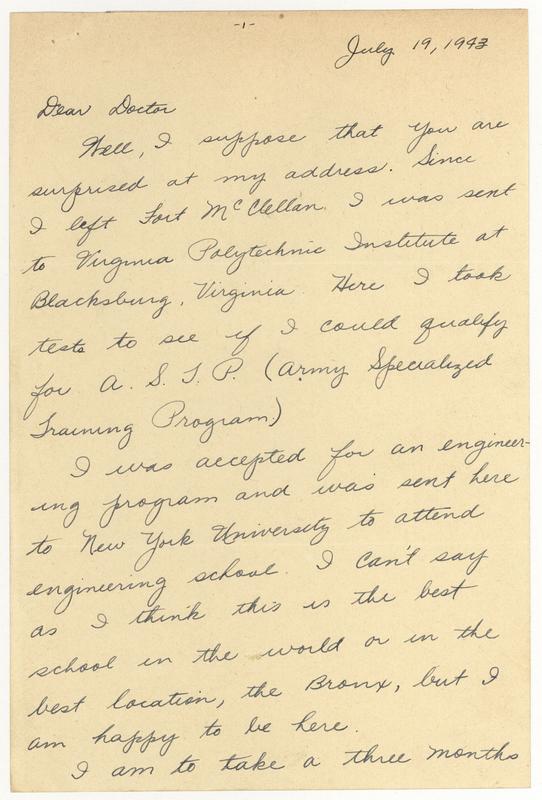 -1-
July 19, 1943
Dear Doctor
Well, I suppose that you are
surprised at my address. Since
I left Fort McClellan, I was sent
to Virginia Polytechnic Institute at
Blacksburg, Virginia. Here I took
tests to see if I could qualify
for A. S. T. P. (Army Specialized
Training Program)
I was accepted for an engineer-
ing program and was sent here
to New York University to attend
engineering school. I can't say
as I think this is the best
school in the world or in the
best location, the Bronx, but I
am happy to be here.
I am to take a three months